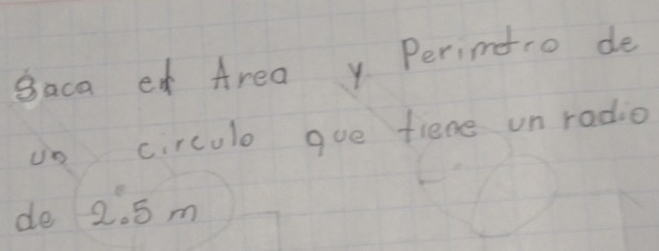 Saca el Area y Perimetro de
un circulo que tiene un radio
de 2.5 m